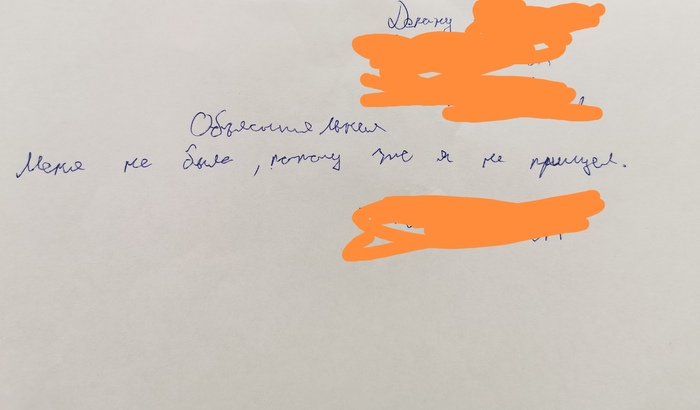 Декану
Объяснительная
Меня не было, потому что я не пришел.